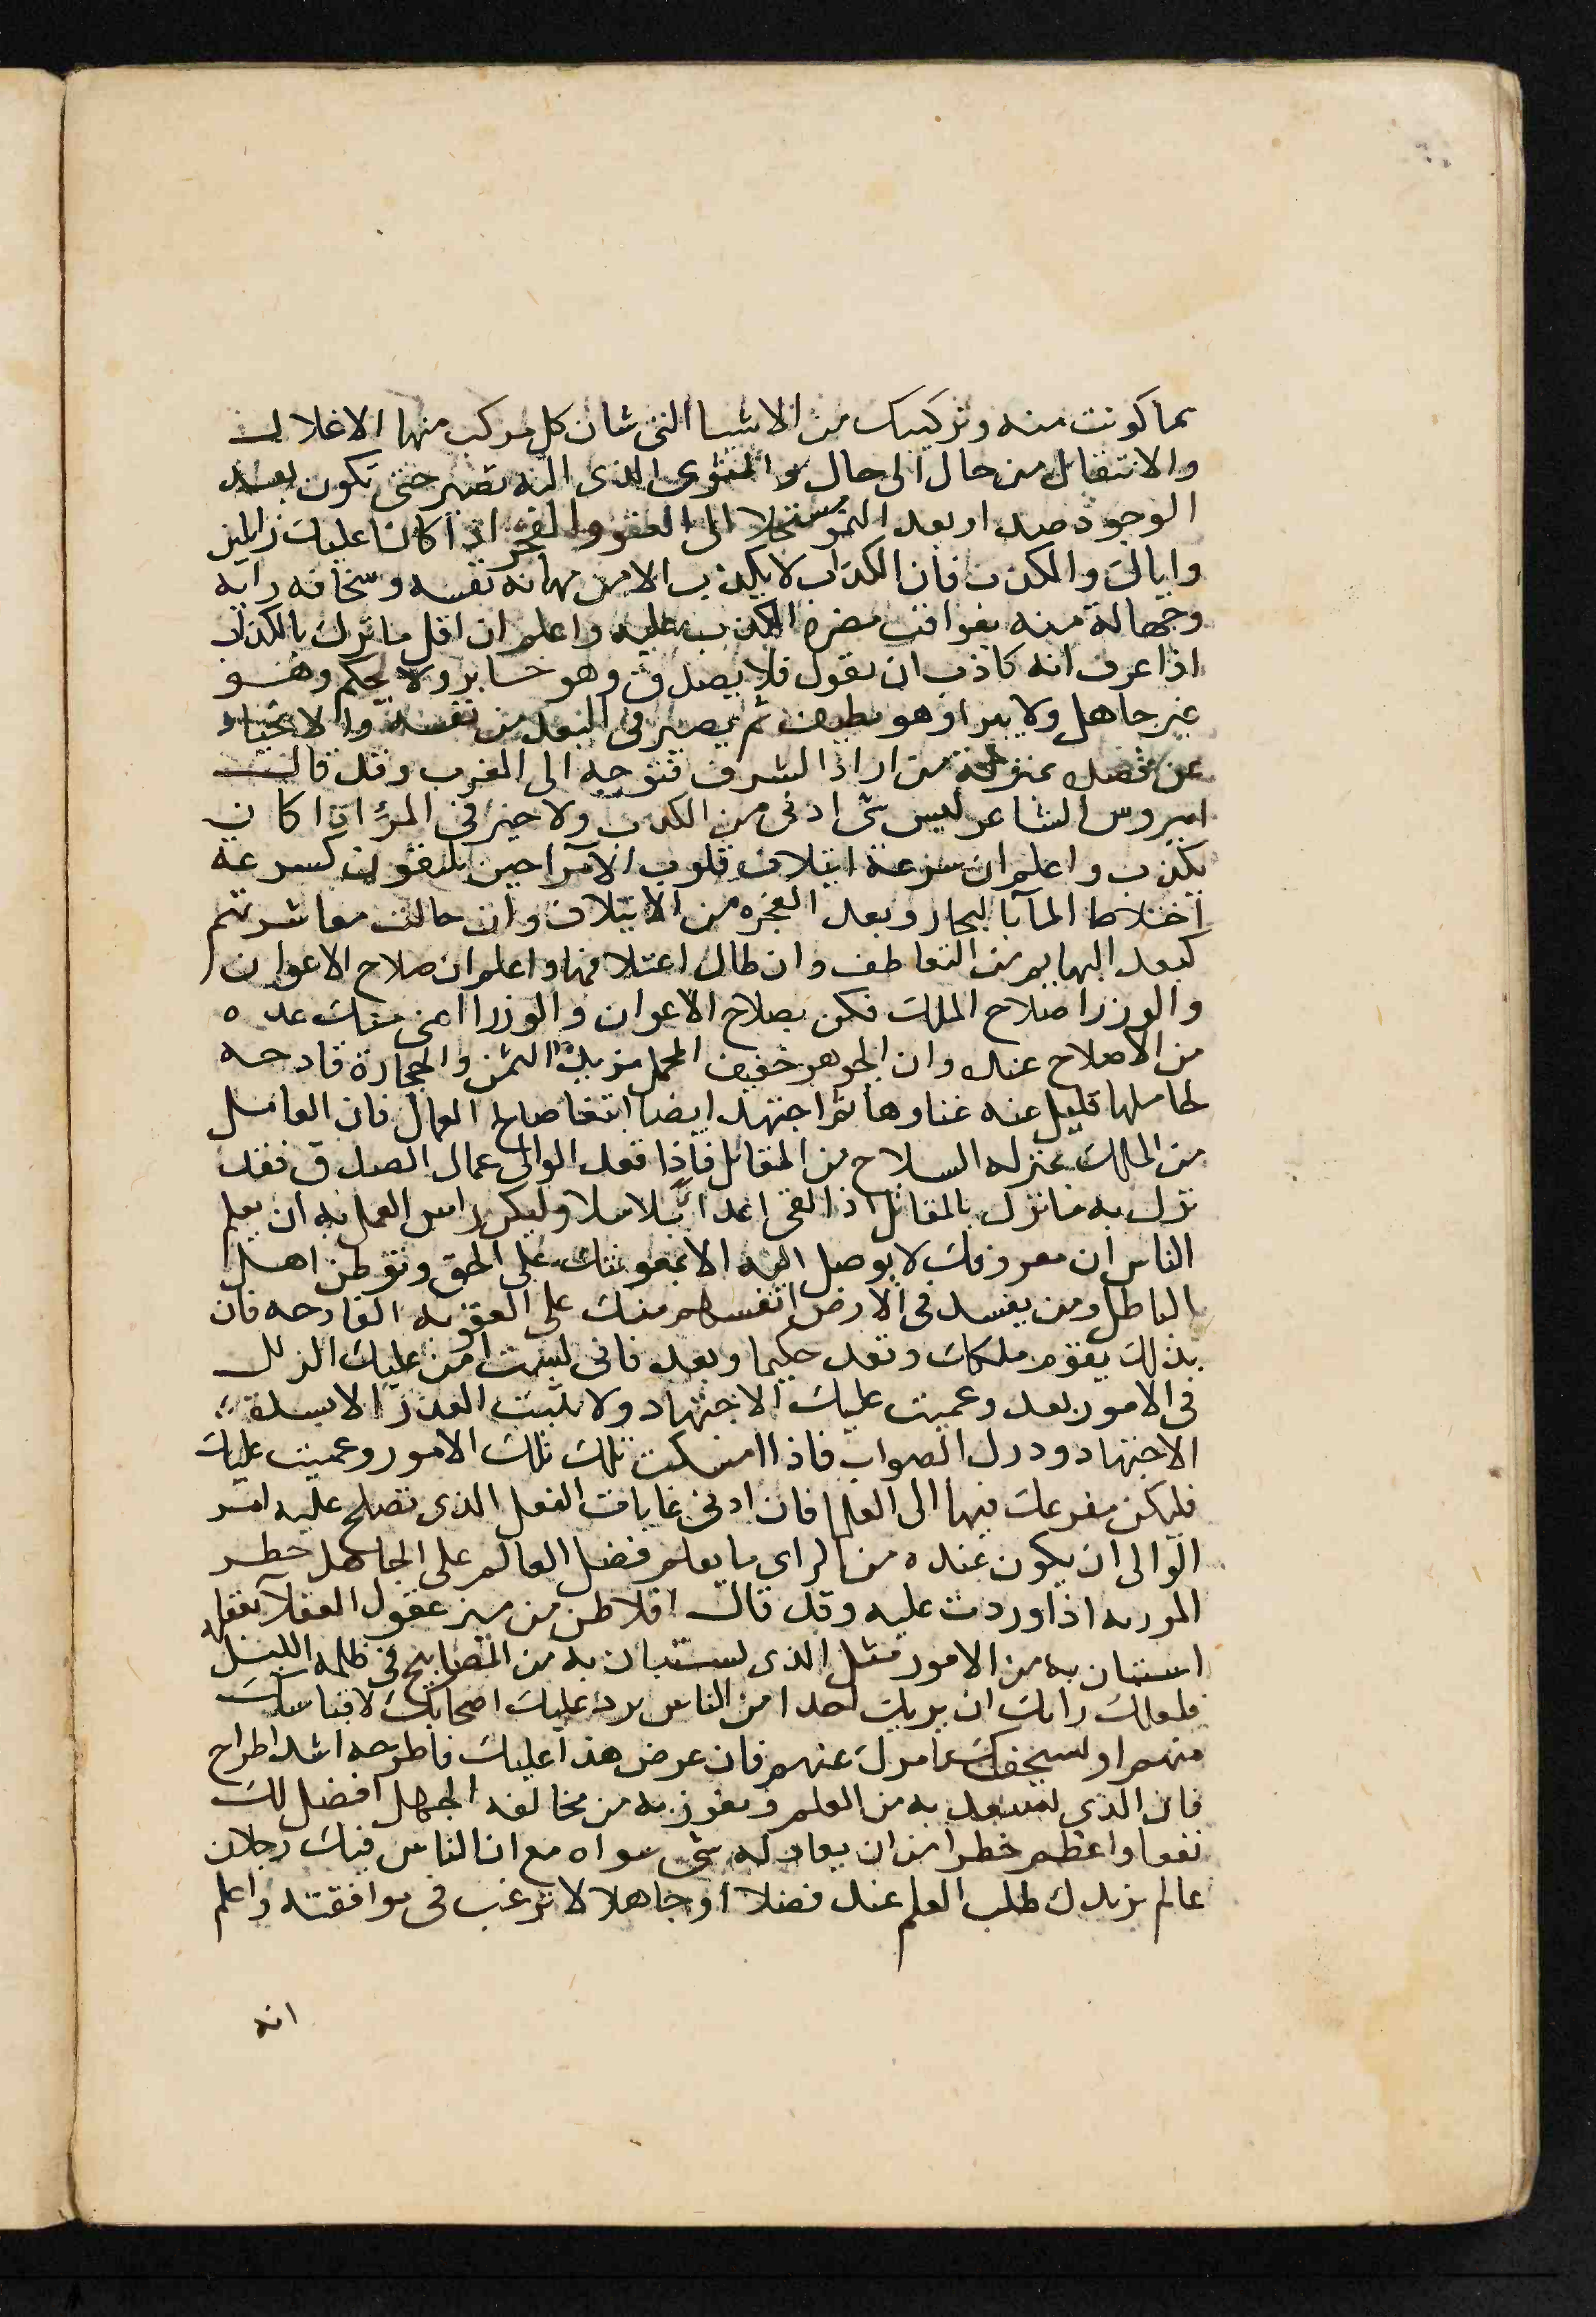 بما كونت منه وتركيبك من الاشيا التى شان كل مركب منها الانحلال
والانتقال من حال الى حال والمثوى الذى اليه تصير حتى تكون بعد
الوجود صدا وبعد النمو مستحيلا الى العفر والفجر اذا كانا عليك زايلين
واياك والكذب فان الكذاب لا يكذب الا من مهانة نفسه وسخافة رايه
وجهالة منه بعواقب مضرة الكذب عليه واعلم ان اقل ما نزل بالكذاب
اذا عرف انه كاذب ان يقول فلا يصدق وهو خابر ولا يحكم وهو
غير جاهل ولا يبرا وهو نطيف ثم يصير فى البعد من نفسه والاحتياد
عن قصده بمنزلة من اراد الشرف فتوجه الى الغرب وقد قال
اميروس الشاعر ليس شى ادنى من الكذب ولا خير فى المرء اذا كان
يكذب واعلم ان سرعة ايتلاف قلوب الابرار حين يلتقون كسرعة
اختلاط المآ بالبحار وبعد الفجره من الايتلاف وان طالت معاشرتهم
كبعد البهايم من التعاطف وان طال اعتلافها واعلم ان صلاح الاعوان
والوزرا صلاح الملك فكن بصلاح الاعوان والوزرا اعنى منك بعده
من الاصلاح عندك وان الجوهر خفيف المحمل مزيد الثمن والحجارة فادحه
لحاملها قليل عنه غناوها ثم اجتهد ايضا ابتغا صالح العمال فان العامل
من الملك بمنزلة السلاح من المقاتل فاذا فقد الوالى عمال الصدق فقد
نزل به ما نزل بالمقاتل اذا لقى اعداء بلا سلاح وليكن راس العمل به ان يعلم
الناس ان معروفك لا يوصل اليه الا بمعونتك على الحق وتوطن اهل
الباطل ومن يفسد فى الارض انفسهم منك على العقوبه الفادحه فان
بذلك يقوم ملكك وتعد حكيما وبعد فانى لست امن عليك الزلل
فى الامور بعد وعميت عليك الاجتهاد ولا يثبت العذر الا ببذله
الاجتهاد ودرك الصواب فاذا امسكت تلك تلك الامور وعميت عليك
فليكن مفزعك فيها الى العلما فان ادنى غايات الفعل الذى تصلح عليه امر
الوالى ان يكون عنده من الراى ما يعلم فضل العالم على الجاهل خطر
الموربه اذا وردت عليه وقد قال افلاطن من ميز عقول العقلا بعقله
استبان به من الامور مثل الذى يستبان به من المصابيح فى ظلمه الليل
فلعلك رابك ان يريك احدا من الناس برد عليك اصحابك لاقتباسك
منهم او يستخفك عامرك عنهم فان عرض هذا عليك فاطرحه اشد اطراح
فان الذى تستفيد به من العلم وتفوز به من مخالفه الجهل افضل لك
نفعا واعظم خطرا من ان يعادله شى سواه مع ان الناس فيك رجلان
عالم يزيدك طلب العلم عنده فضلا او جاهلا لا ترغب فى موافقته واعلم
انه